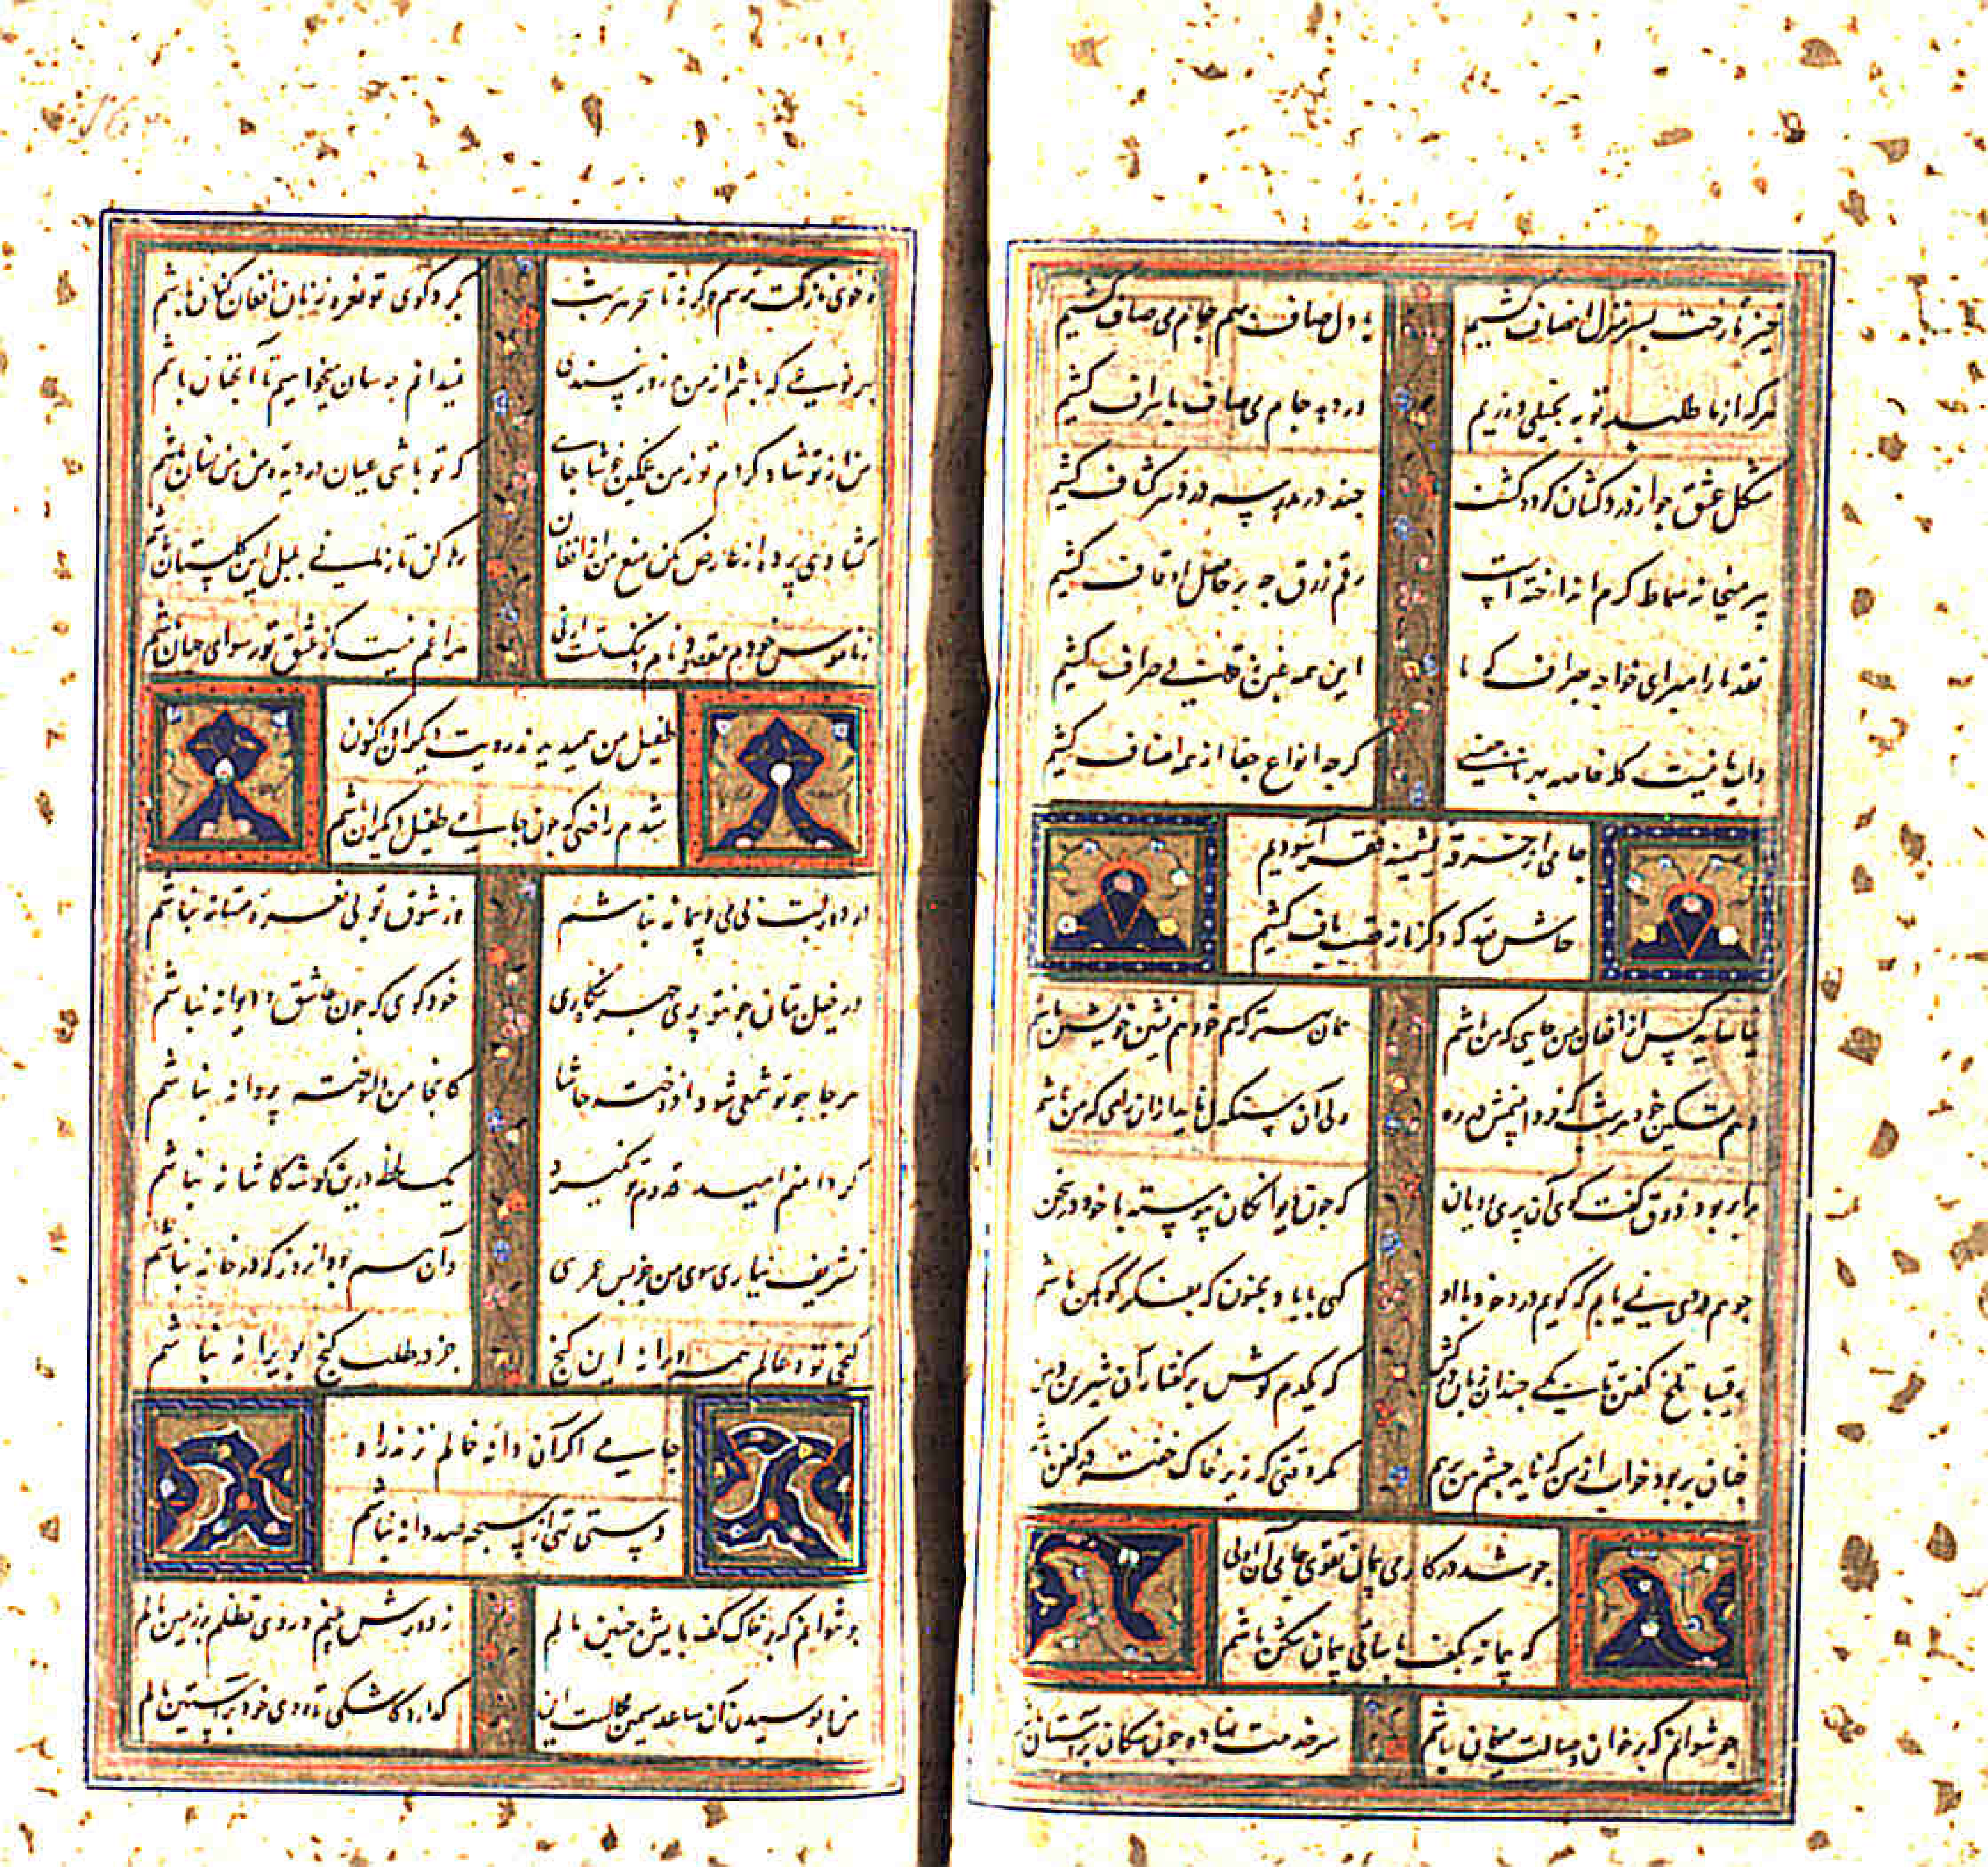 خیز تا رخت بسرمنزل انصاف کشیم
با دل صاف بهم جام می صاف کشیم
هرکه از ما طلبد توبه بخیلی ورزیم
ور دهد جام می صاف باسراف کشیم
مشکل عشق چو از درد کشان کردد کشف
چند در مدرسه درد سر کشاف کشیم
پیر میخانه سماط کرم انداخته است
رقم زرق چه بر حاصل اوقاف کشیم
نقد ما را مبر ای خواجه بصراف که ما
این همه غبن ز قلبیت صراف کشیم
داب ما نیست کله خاصه بدنامنصفی
کرچه انواع جفا از همه اصناف کشیم
جامی از خرقه پشمینه فقر آسودیم
حاش لله که دکر ناز قصب باف کشیم
نیاساید کس از افغان من جایی که من باشم
همان بهتر که هم خود همنشین خویشتن باشم
دهم تسکین خود هر شب که فردا بینمش در ره
ولی آن سنکدل ناید از آن راهی که من باشم
مرا بر بود ذوق کفت کوی آن پری زانسان
که چون دیوانکان پیوسته با خود در سخن
چو همدردی نمی یابم که کویم درد خود با او
کهی با یاد مجنون که بفکر کوهکن باشم
رقیبا تلخ کفتن تا بکی چندان زبان درکش
که یکدم کوش بر کفتار آن شیرین دهن
چنان بربود خواب از من که ناید چشم من برهم
مکر وقتی که زیر خاک خفته در کفن باشم
چو شد در کار می پیمان تقوی جامی آن اولی
که پیمانه بکف با ساقی پیمان شکن باشم
چو نتوانم که بر خوان وصالت میهمان باشم
سر خدمت نهاده چون سکان بر آستان باشم
ز خوی نازکت ترسم وکر نه تا سحر هر شب
بکرد کوی تو نعره زنان افغان کنان باشم
بهر نوعی که باشم از من مهزور نپسندی
نمیدانم چه سان میخواهیم تا آنچنان باشم
من از تو شاد کردم تو ز من غمکین خوشا جایی
که تو باشی عیان در دیده من نهان باشم
کشادی پرده از عارض مکن منع من از افغان
رها کن تا زمانی بلبل این کلستان باشم
ز ناموس خودم مقصود نام و ننک تست اولی
مرا غم نیست کز عشق تو رسوای جهان باشم
طفیل من همی دیدند رویت دیکران اکنون
شدم راضی که چون جامی طفیل دیکران باشم
در دور لبت بی می و پیمانه نباشم
وز شوق تو بی نعره مستانه نباشم
در خیل بتان چون تو پری چهره نکاری
خود کوی که چون عاشق و دیوانه نباشم
هر جا چو تو شمعی شود افروخته حاشا
کانجا من دلسوخته پروانه نباشم
کر دامنم امید قدوم تو نکیرد
یک لحظه درین کوشه کاشانه نباشم
تشریف نیاری سوی من جز پس عمری
وآن هم بود آن روز که در خانه نباشم
کنجی تو و عالم همه ویرانه این کنج
جز در طلب کنج بویرانه نباشم
جامی اکر آن دانه خالم نزند راه
دستی تهی از سبحه صد دانه نباشم
چو نتوانم که بر خاک کف پایش جبین مالم
ز دورش بینم و روی تظلم بر زمین مالم
من و بوسیدن آن ساعد سیمین محالست این
که آرد کاشکی تا روی خود بر آستین مالم